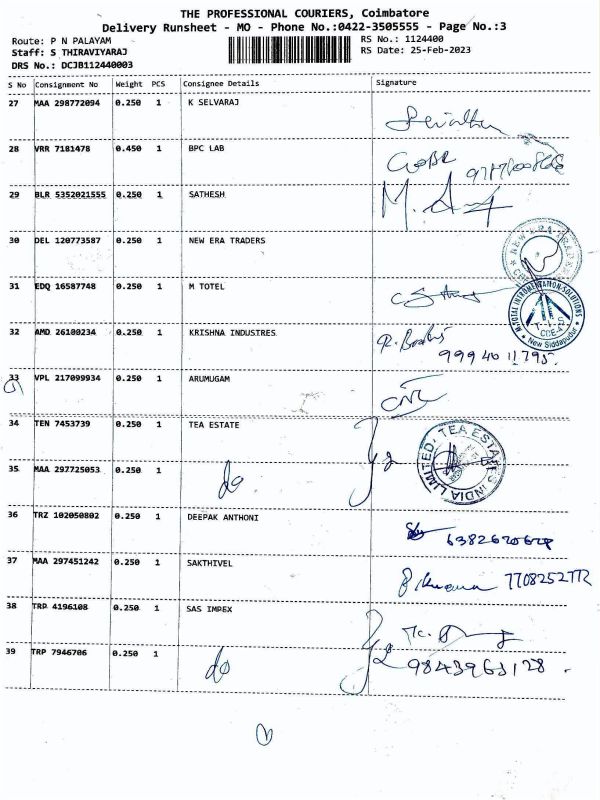 THE PROFESSIONAL COURIERS, Coimbatore
Delivery Runsheet - MO - Phone No.:0422-3505555 - Page No.:3
Route: P N PALAYAM
RS No.: 1124400
Staff: S THIRAVIYARAJ
RS Date: 25-Feb-2023
DRS No.: DCJB112440003
S No Consignment No Weight PCS Consignee Details Signature
27 MAA 298772094 0.250 1 K SELVARAJ
28 VRR 7181478 0.450 1 BPC LAB
29 BLR 5352021555 0.250 1 SATHESH
30 DEL 120773587 0.250 1 NEW ERA TRADERS
NEW ERA TRADERS
31 EDQ 16587748 0.250 1 M TOTEL
M TOTAL INSTRUMENTATION SOLUTIONS
New Siddapudur
32 AMD 26100234 0.250 1 KRISHNA INDUSTRES
99940 11795
33 VPL 217099934 0.250 1 ARUMUGAM
34 TEN 7453739 0.250 1 TEA ESTATE
TEA ESTATES INDIA LIMITED
35 MAA 297725053 0.250 1 do
36 TRZ 102050802 0.250 1 DEEPAK ANTHONI
37 MAA 297451242 0.250 1 SAKTHIVEL
38 TRP 4196108 0.250 1 SAS IMPEX
39 TRP 7946706 0.250 1 do
9843963128